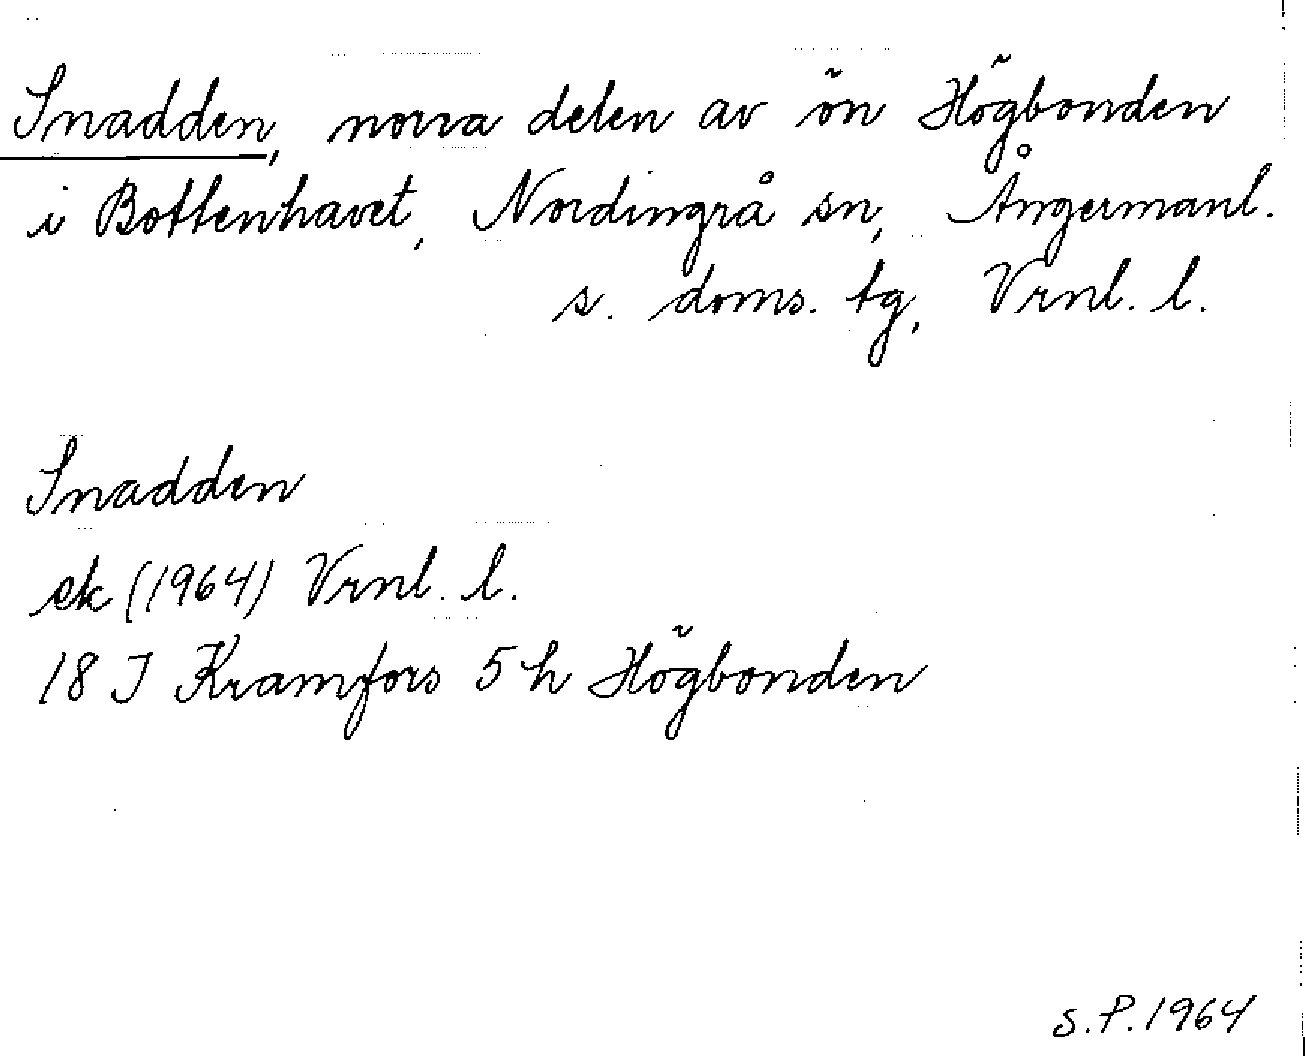 Snadden, norra delen av ön Högbonden
i Bottenhavet, Nordingrå sn, Ångermanl.
s. doms. tg, Vrnl. l.
Snadden
ek (1964) Vrnl. l.
18 J Kramfors 5 h Högbonden
S.P. 1964